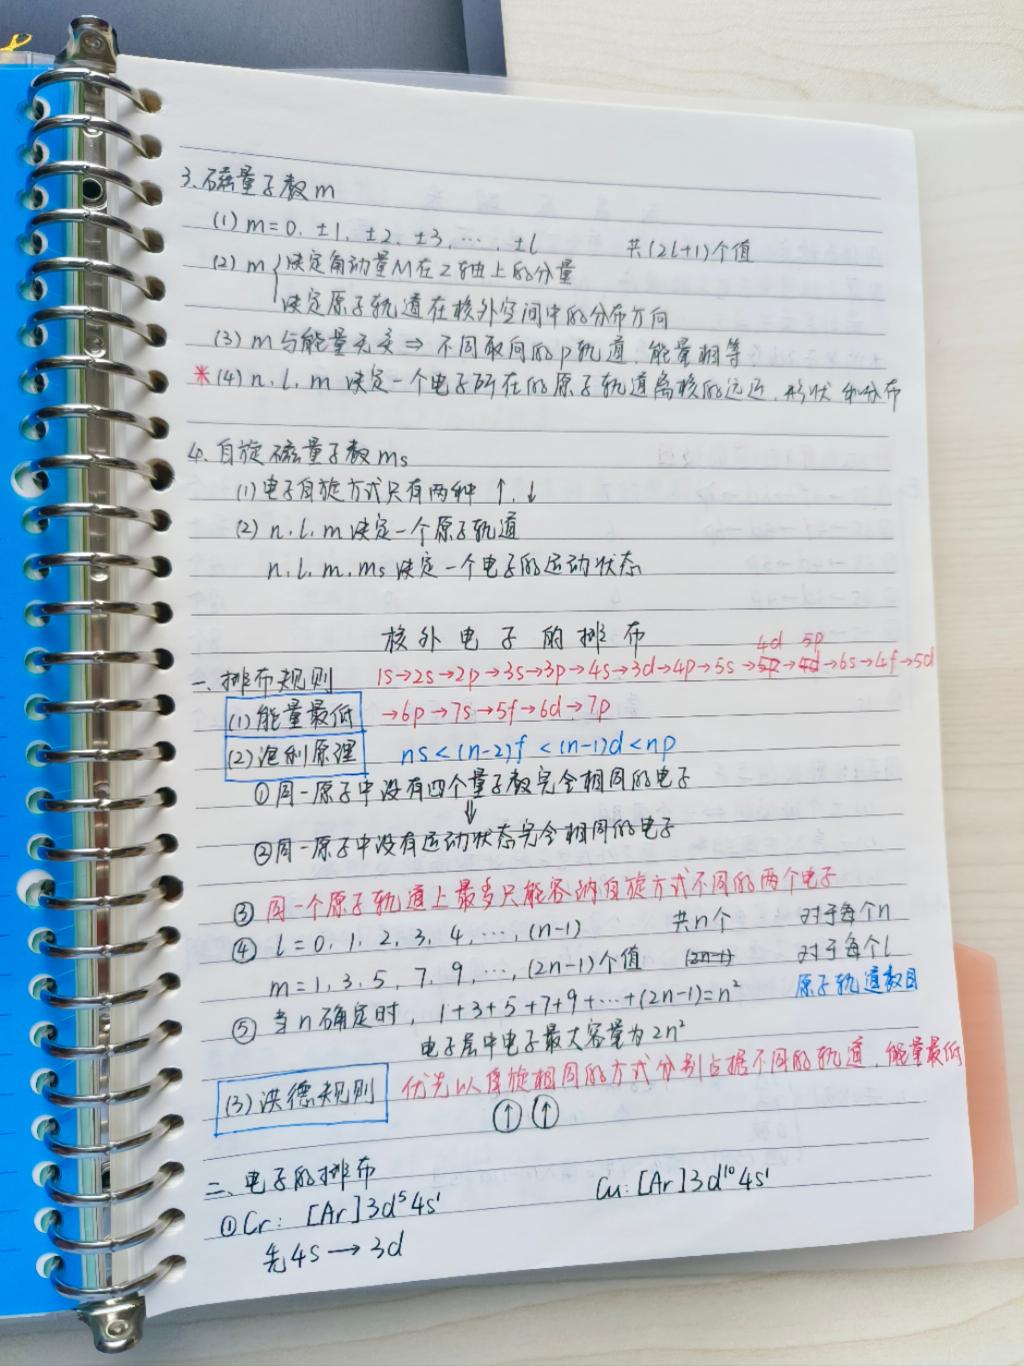 3.磁量子数m
(1) m=0, ±1, ±2, ±3, …, ±l 共(2l+1)个值
(2) m { 决定角动量M在Z轴上的分量
决定原子轨道在核外空间中的分布方向
(3) m与能量无关 ⇒ 不同取向的p轨道,能量相等
*(4) n, l, m 决定一个电子所在的原子轨道离核的远近,形状和分布
4.自旋磁量子数ms
(1)电子自旋方式只有两种 ↑,↓
(2) n, l, m 决定一个原子轨道
n, l, m, ms 决定一个电子的运动状态
核外电子的排布
4d 5p
一.排布规则 1s→2s→2p→3s→3p→4s→3d→4p→5s→5p→4d→6s→4f→5d
(1)能量最低 →6p→7s→5f→6d→7p
(2)泡利原理 ns<(n-2)f<(n-1)d<np
①同一原子中没有四个量子数完全相同的电子
⇓
②同一原子中没有运动状态完全相同的电子
③ 同一个原子轨道上最多只能容纳自旋方式不同的两个电子
④ l=0, 1, 2, 3, 4, …, (n-1) 共n个 对于每个n
m=1, 3, 5, 7, 9, …, (2n-1)个值 (2n-1) 对于每个l
⑤ 当n确定时, 1+3+5+7+9+…+(2n-1)=n² 原子轨道数目
电子层中电子最大容量为2n²
(3)洪德规则 优先以自旋相同的方式分别占据不同的轨道,能量最低
↑ ↑
二、电子的排布
①Cr: [Ar]3d⁵4s¹ Cu: [Ar]3d¹⁰4s¹
先4s→3d